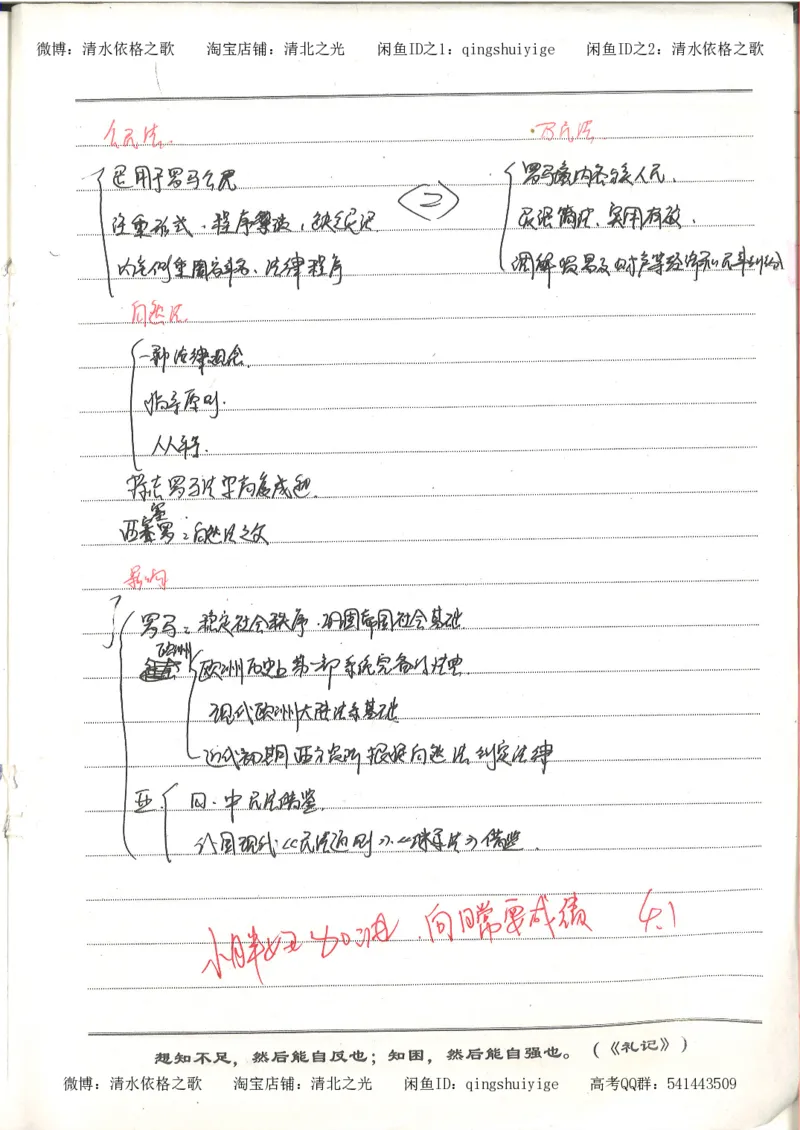 微博：清水依格之歌 淘宝店铺：清北之光 闲鱼ID之1：qingshuiyige 闲鱼ID之2：清水依格之歌
公民法
适用于罗马公民
注重形式、程序繁琐，缺乏灵活
内容侧重国家事务、法律程序
二
万民法
罗马境内各族人民、
灵活简洁、实用有效、
调解贸易及财产等经济和民事纠纷
自然法
一种法律观念
指导原则
人人平等
存在罗马法中向质成熟
西塞罗：自然法之父
影响
罗马：稳定社会秩序、巩固帝国社会基础
欧洲
欧洲历史上第一部系统完备的法典
现代欧洲大陆法系基础
近代初期西方根据自然法制定法律
亚
日、中民法借鉴
我国现代《民法通则》、《继承法》借鉴
小胖妞加油，向日常要成绩 4.1
想知不足，然后能自反也；知困，然后能自强也。（《礼记》）
微博：清水依格之歌 淘宝店铺：清北之光 闲鱼ID：qingshuiyige 高考QQ群：541443509